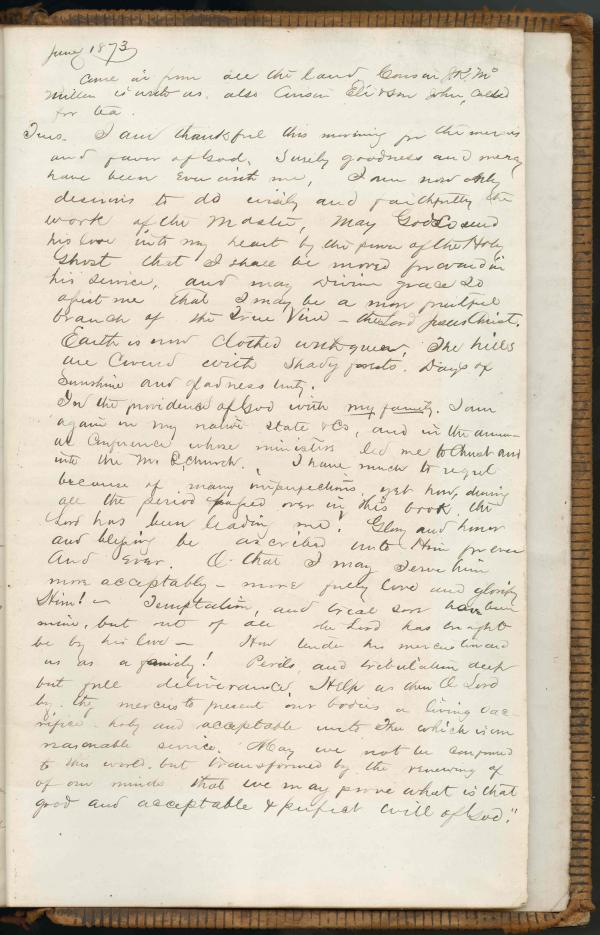 June 1873
came in from all the land Cousin J. K. Mc
Millen is with us. also Cousin Eli & son John, called
for tea.
Tues. I am thankful this morning for the mercies
and favor of God. Surely goodness and mercy
have been ever with me, I am now only
desirous to do wisely and faithfully the
work of the Master, May God so send
his love into my heart by the power of the Holy
Ghost that I shall be moved forward in
his service, and may Divine grace so
assist me that I may be a more fruitful
branch of the True Vine – the Lord Jesus Christ.
Earth is now clothed with green. The hills
are covered with shady forests. Days of
Sunshine and gladness
In the providence of God with my family. I am
again in my native state &c, and in the annu-
al Conference whose ministers led me to Christ and
into the M. E. Church. I have much to regret
because of many imperfections, yet how, during
all the period passed over in this book, the
Lord has been leading me! Glory and honor
and blessing be ascribed unto Him forever
and ever. O that I may serve him
more acceptably – more fully love and glorify
Him! – Temptation, and trial sore have been
mine, but out of all the Lord has brought
be by his love – How tender his mercies toward
us as a family! Perils, and tribulation deep
but full deliverance. Help us then O Lord
by thy mercies to present our bodies a living sac-
rifice holy and acceptable unto Thee which is our
reasonable service. May we not be conformed
to this world, but transformed by the renewing of
of our minds that we may prove what is that
good and acceptable & perfect will of God."